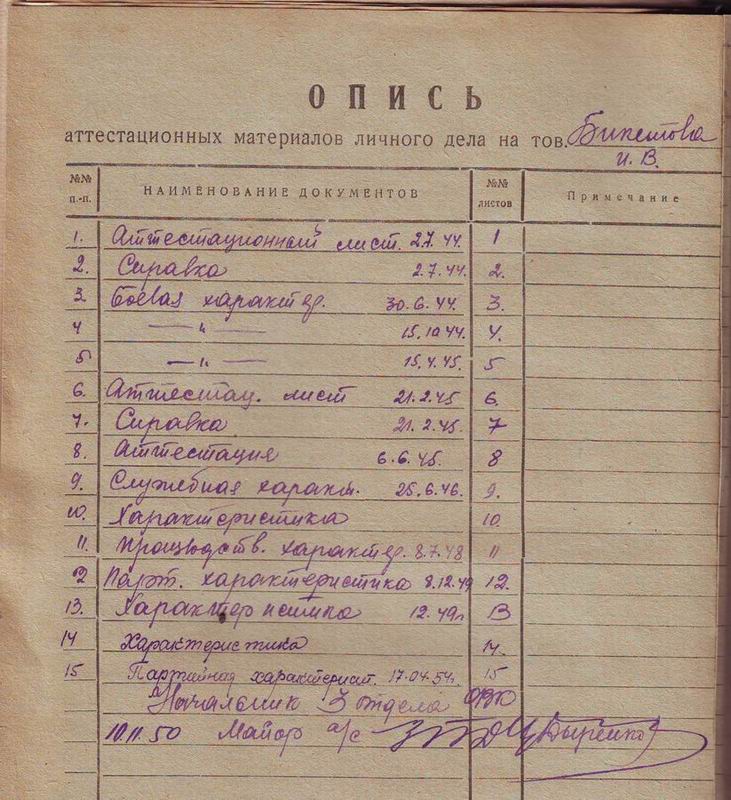 ОПИСЬ
аттестационных материалов личного дела на тов.
И. В.
№№ п.-п. НАИМЕНОВАНИЕ ДОКУМЕНТОВ №№ листов Примечание
1. Аттестационный лист. 2.7.44. 1
2. Справка 2.7.44. 2.
3. Боевая характер. 30.6.44. 3.
4 —„— 15.10.44. 4.
5 —„— 15.4.45. 5
6. Аттестац. лист 21.2.45 6.
7. Справка 21.2.45. 7
8. Аттестация 6.6.45. 8
9. Служебная характ. 25.6.46. 9.
10. Характеристика 10.
11. Производств. характер. 8.7.48 11
12 Парт. характеристика 8.12.49 12.
13. Характеристика 12.49г 13
14 Характеристика 14.
15 Партийная характерист. 17.04.54. 15
Начальник 3 отдела
10.11.50 Майор а/с